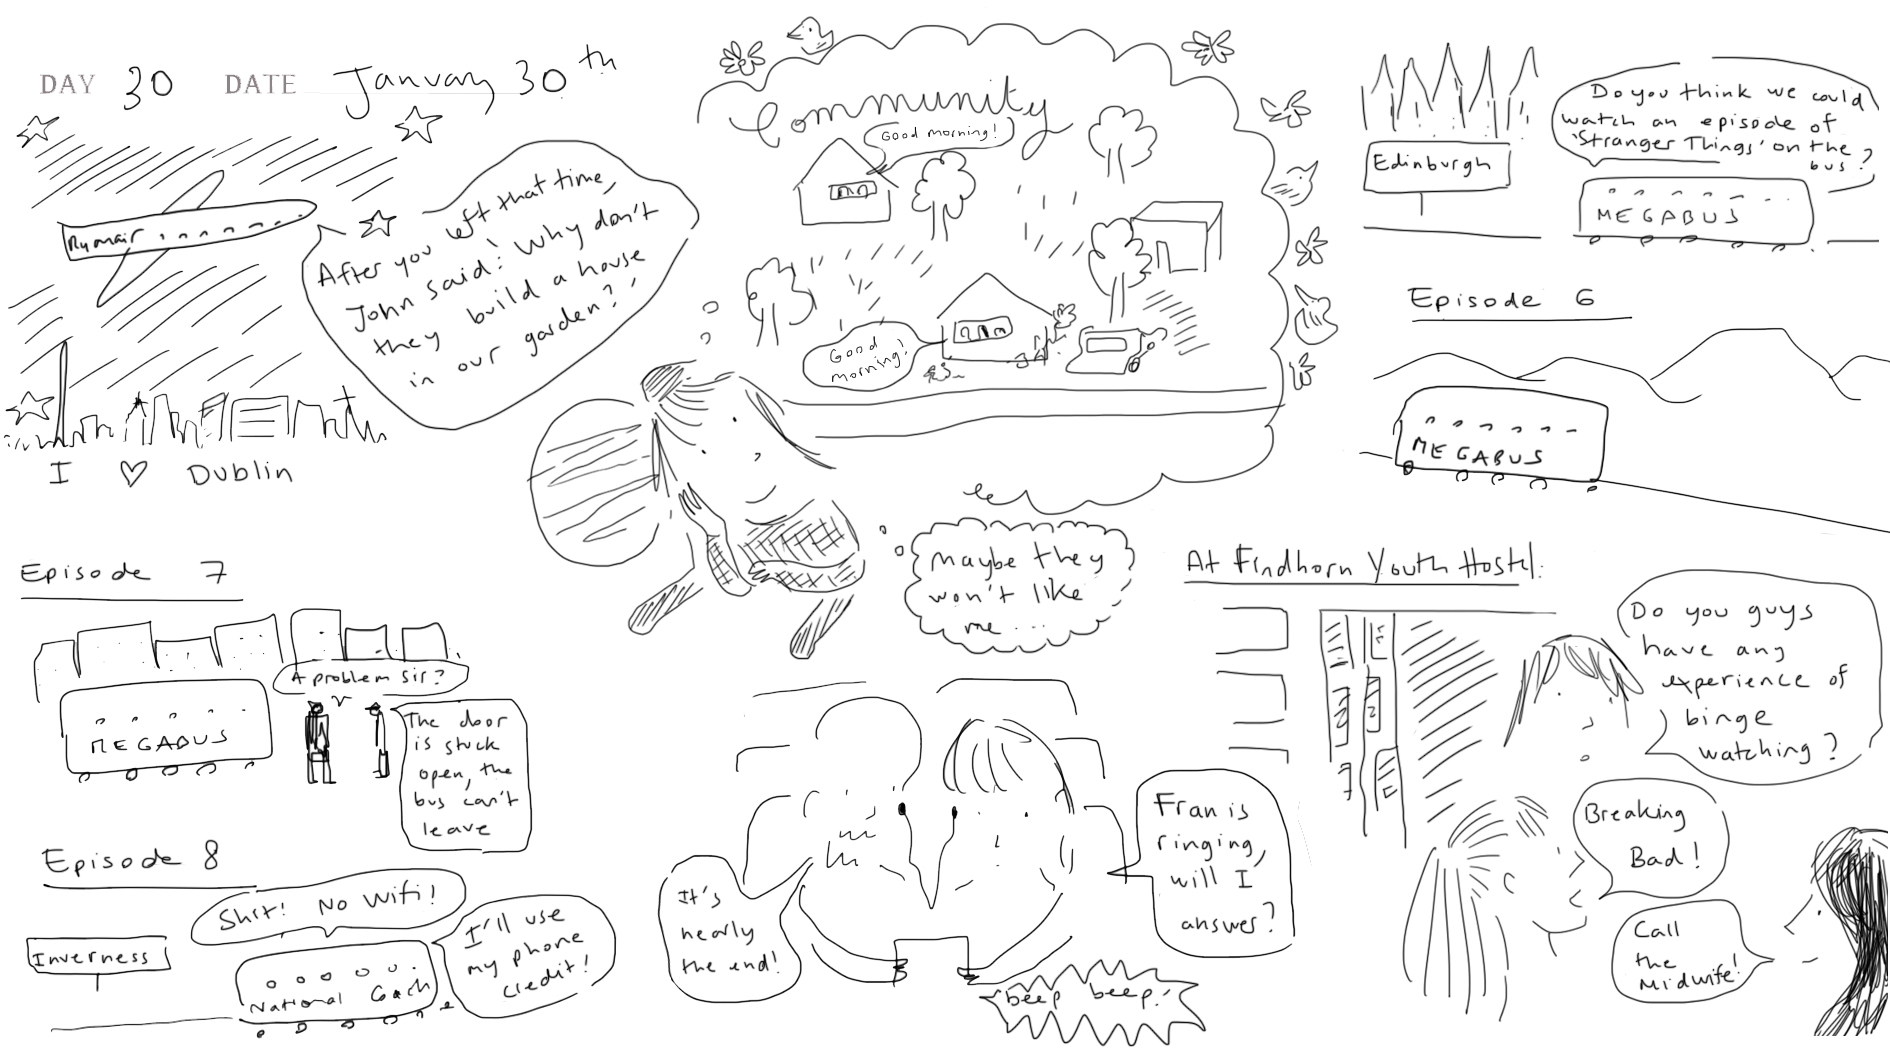 DAY 30 DATE January 30th
Ryanair
After you left that time,
John said: 'Why don't
they build a house
in our garden?'
I ♡ Dublin
Community
Good morning!
Good
morning!
maybe they
won't like
me...
Edinburgh
Do you think we could
watch an episode of
'Stranger Things' on the
bus?
MEGABUS
Episode 6
MEGABUS
Episode 7
A problem sir?
MEGABUS
The door
is stuck
open, the
bus can't
leave
Episode 8
Shit! No Wifi!
Inverness
National Coach
I'll use
my phone
credit!
It's
nearly
the end!
Fran is
ringing,
will I
answer?
beep beep!
At Findhorn Youth Hostel:
Do you guys
have any
experience of
binge
watching?
Breaking
Bad!
Call
the
Midwife!